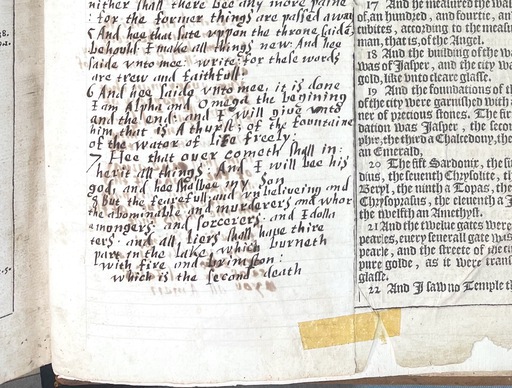 nither shall there bee any more paine
: for the former things are passed away
5 And hee that sate uppon the throne saide,
behould I make all things new: And hee
saide vnto mee: write: for these words
are trew and faithfull.
6 And hee saide vnto mee, it is done
I am Alpha and Omega the begining
and the end: and I will give vnto
him that is A thurst; of the fountaine
of the wator of life freely:
7 Hee that over cometh shall in:
herit all things. And I will bee his
god, and hee shalbee my son
8 But the fearefull and vnbeliveing and
the abominable and murderers and whor
emongers. and sorcerers. and Idolla
ters. and all liers shall have thire
part in the lake, which burneth
with fire and brimston:
which is the second death
38.
.5.
17 And he measured the wa
of, an hundred, and fourtie, and
cubites, according to the measu
man, that is, of the Angel.
18 And the building of the wa
was of Jasper, and the city wa
gold, like vnto cleare glasse.
19 And the foundations of th
of the city were garnished with a
ner of precious stones. The first
dation was Jasper, the secon
phir, the third a Chalcedony, the
an Emerald,
20 The fift Sardonix, the si
dius, the seuenth Chrysolite, th
Beryl, the ninth a Topas, the
Chrysoprasus, the eleuenth a J
the twelfth an Amethyst.
21 And the twelue gates were
pearles, euery seuerall gate was
pearle, and the streete of the citi
pure golde, as it were trans
glasse.
22 And I saw no Temple th